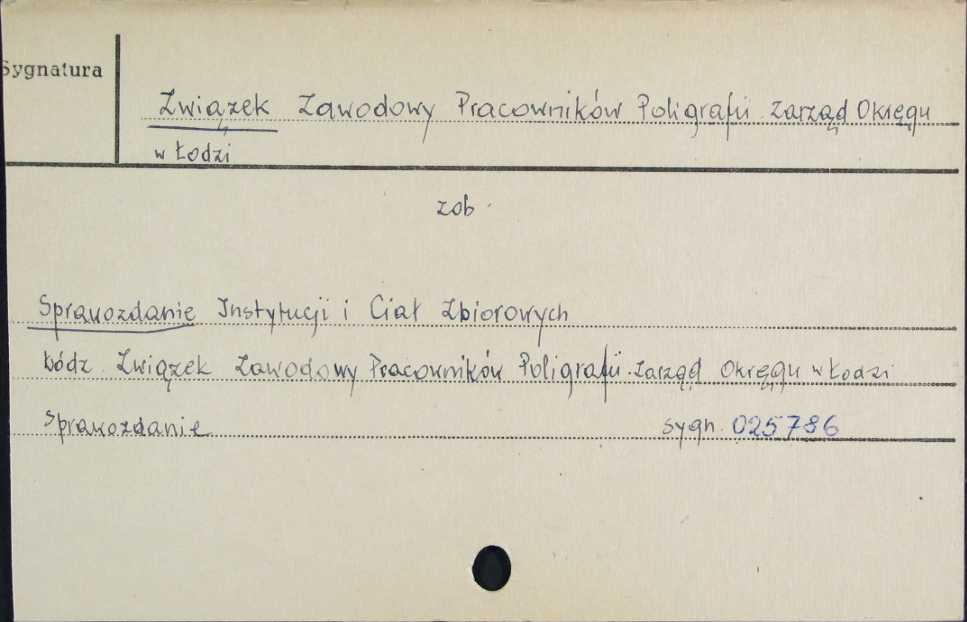 Sygnatura
Związek Zawodowy Pracowników Poligrafii. Zarząd Okręgu
w Łodzi
zob.
Sprawozdanie Instytucji i Ciał Zbiorowych
Łódź. Związek Zawodowy Pracowników Poligrafii. Zarząd Okręgu w Łodzi
Sprawozdanie sygn. 025786